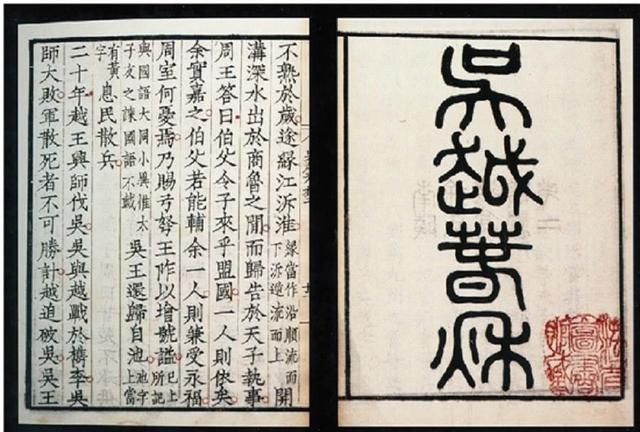 吳越春秋
不熟於歲途緣江泝淮緣當作沿順流而下泝逆流而上開
溝深水出於商魯之間而歸告於天子執事
周王答曰伯父令子來乎盟國一人則依矣
余實嘉之伯父若能輔余一人則兼受永福
周室何憂焉乃賜弓弩王阼以增號諡已上所記
與國語大同小異惟太子友之諫國語不載吳王還歸自池池字上當
有黃字息民散兵
二十年越王興師伐吳吳與越戰於檇李吳
師大敗軍散死者不可勝計越追破吳吳王